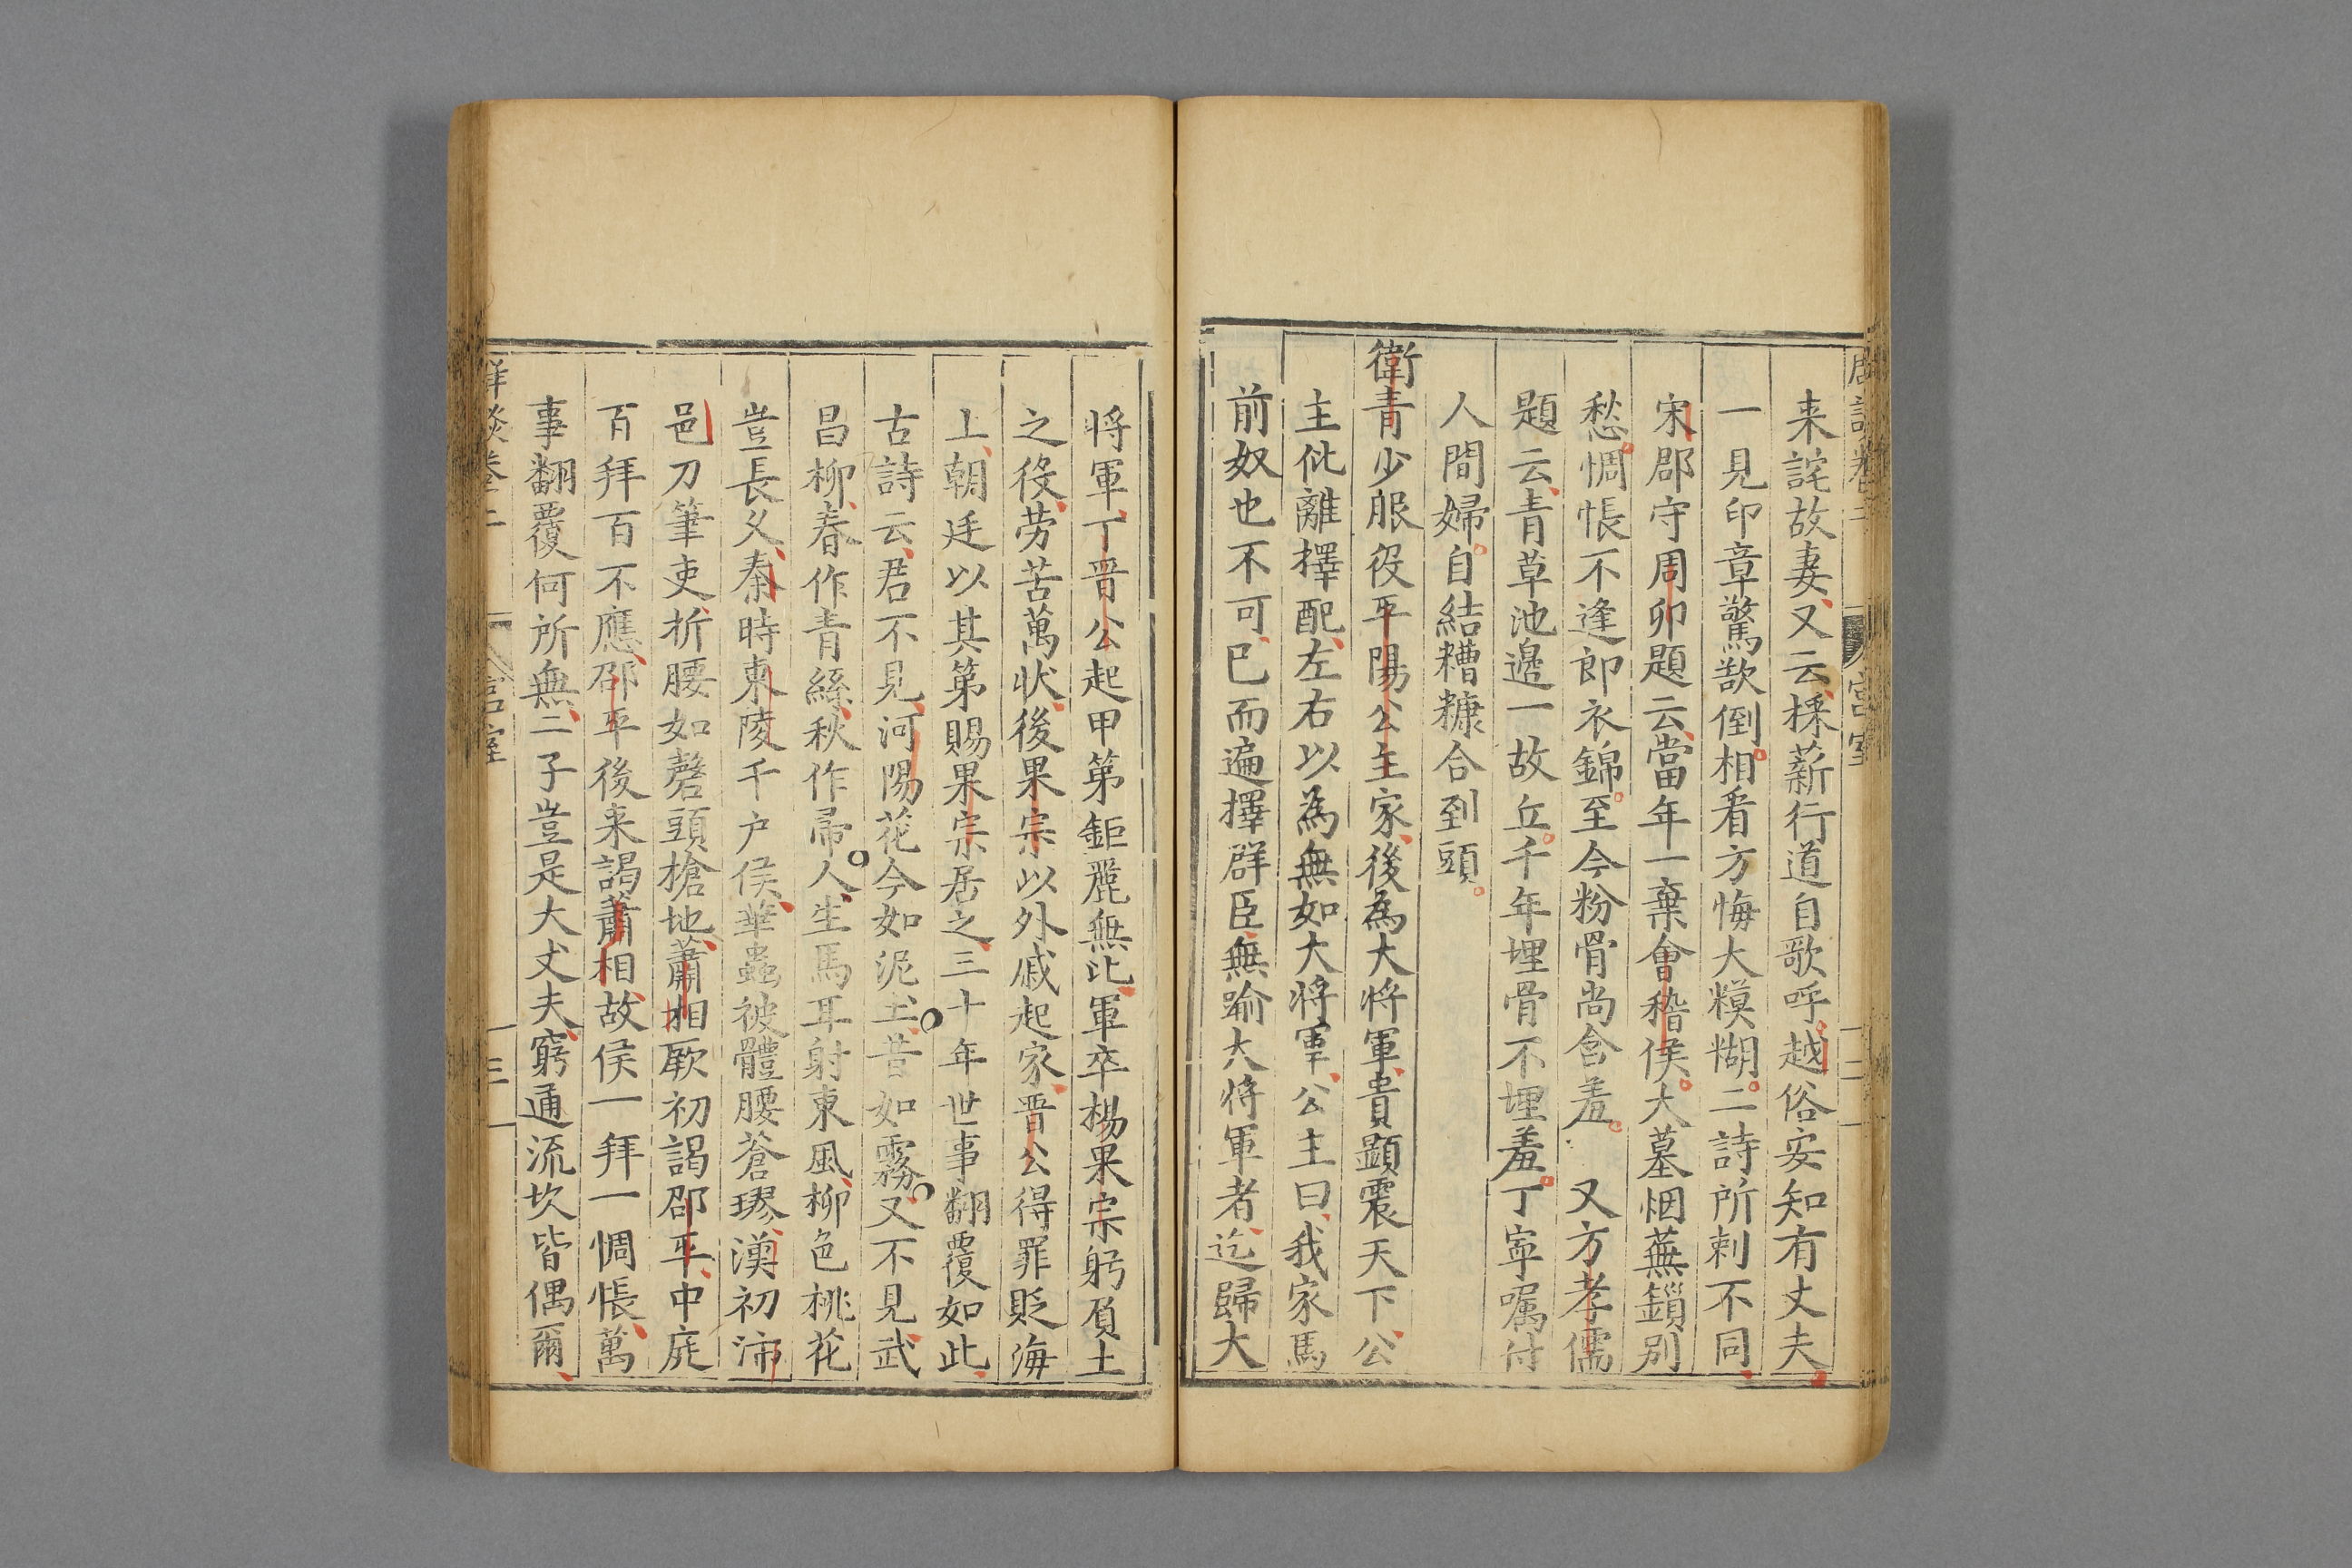 来詫故妻又云採薪行道自歌呼越俗安知有丈夫
一見印章驚歎倒相看方悔大糢糊二詩所刺不同
宋郡守周卯題云當年一棄會稽侯大墓烟蕪鎖别
愁惆悵不逢郎衣錦至今粉骨尚含羞又方孝儒
題云青草池邊一故丘千年埋骨不埋羞丁寧嘱付
人間婦自結糟糠合到頭
衛青少服役平陽公主家後為大将軍貴顕震天下公
主仳離擇配左右以為無如大将軍公主曰我家馬
前奴也不可已而遍擇群臣無踰大将軍者迄歸大
将軍丁晋公起甲第鉅麗無比軍卒楊果宗躬負土
之役劳苦萬状後果宗以外戚起家晋公得罪貶海
上朝廷以其第賜果宗居之三十年世事翻覆如此
古詩云君不見河陽花今如泥土昔如霧又不見武
昌柳春作青絲秋作帚人生馬耳射東風柳色桃花
豈長久秦時東陵千户侯華蟲被體腰蒼璆漢初沛
邑刀筆吏折腰如磬頭槍地蕭相厥初謁邵平中庭
百拜百不應邵平後来謁蕭相故侯一拜一惆悵萬
事翻覆何所無二子豈是大丈夫窮通流坎皆偶爾
談卷二
三